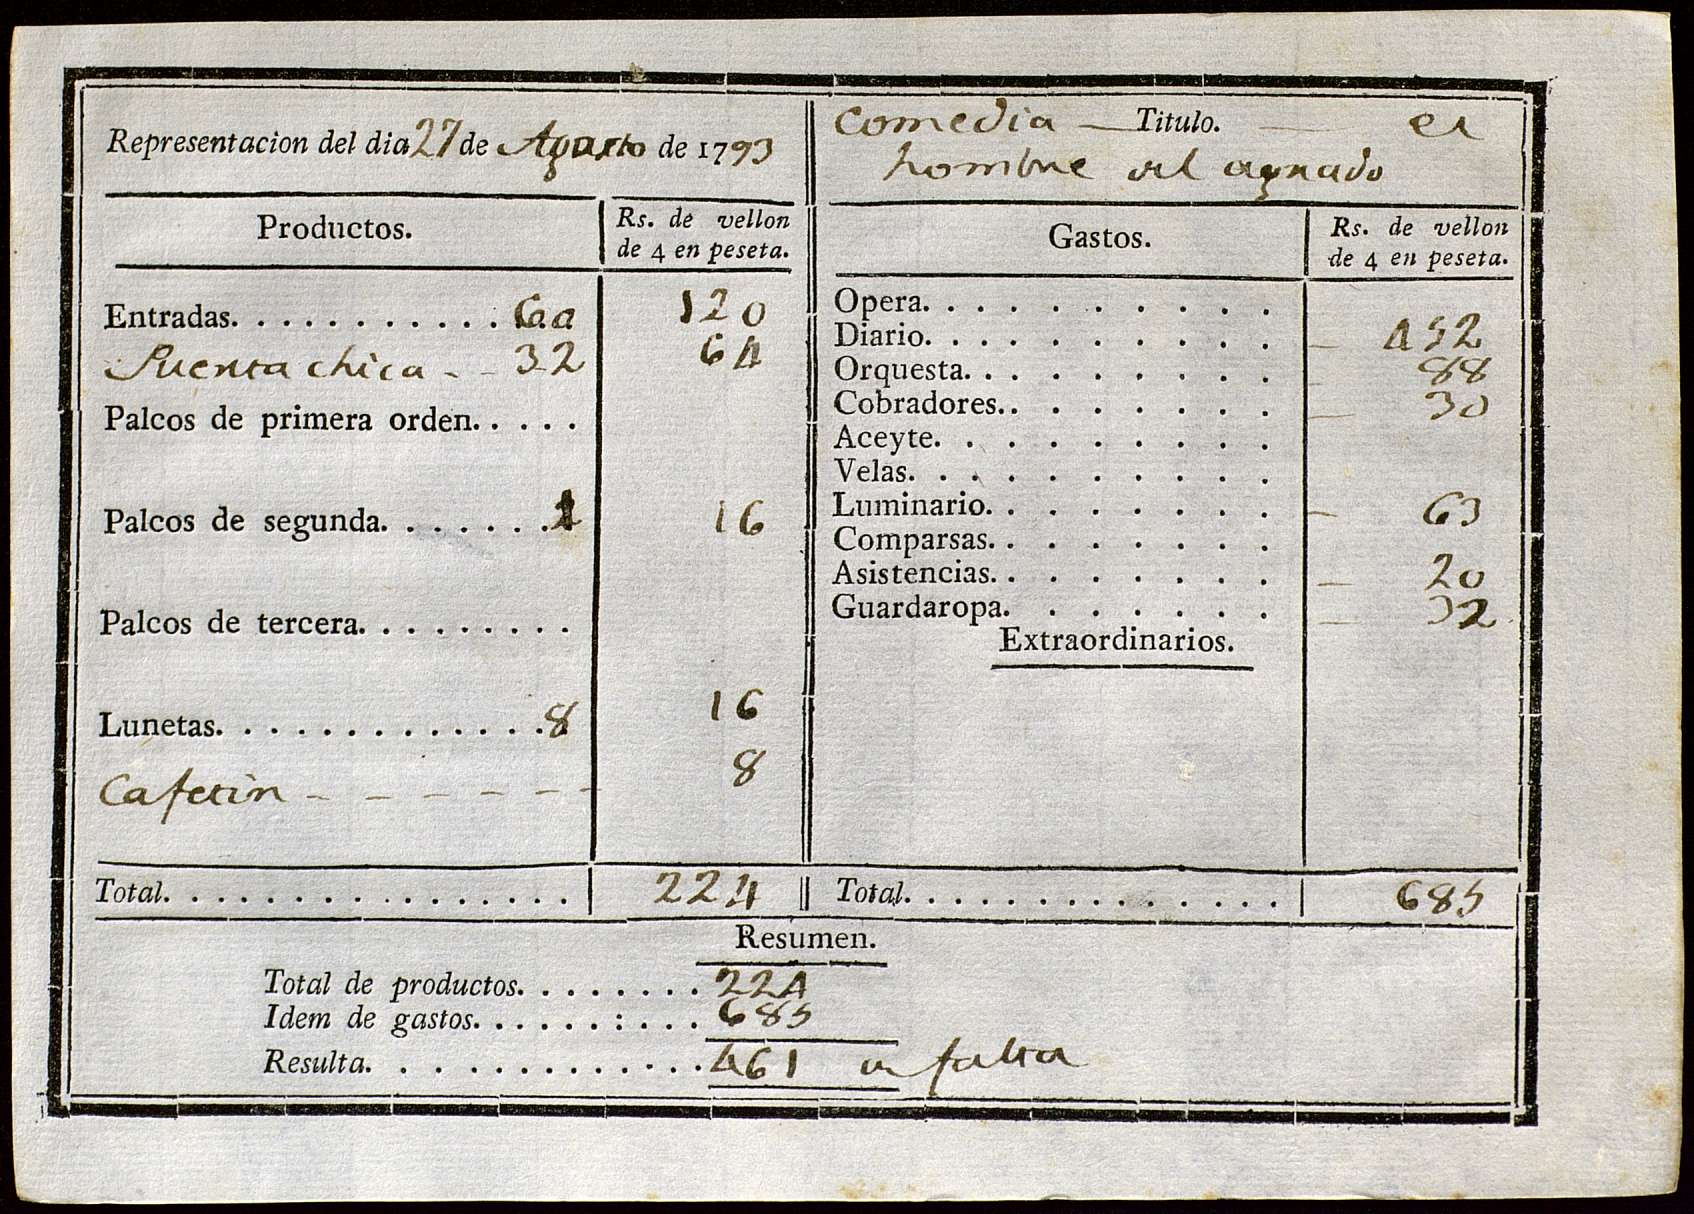 Representacion del dia 27 de Agosto de 1793
Productos. Rs. de vellon de 4 en peseta.
Entradas. . . . . . . . . . . 60 120
Puerta chica - - 32 64
Palcos de primera orden. . . . .
Palcos de segunda. . . . . . . 1 16
Palcos de tercera. . . . . . . . .
Lunetas. . . . . . . . . . . . . 8 16
Cafetin - - - - - - 8
Total. . . . . . . . . . . . . . . . 224
Comedia — Titulo. — el
hombre
Gastos. Rs. de vellon de 4 en peseta.
Opera. . . . . . . . . .
Diario. . . . . . . . . . — 452
Orquesta. . . . . . . . . — 88
Cobradores. . . . . . . . — 30
Aceyte. . . . . . . . . .
Velas. . . . . . . . . .
Luminario. . . . . . . . — 63
Comparsas. . . . . . . .
Asistencias. . . . . . . . — 20
Guardaropa. . . . . . . — 32
Extraordinarios.
Total. . . . . . . . . . . . . . . 685
Resumen.
Total de productos. . . . . . . . 224
Idem de gastos. . . . . . : . . . 685
Resulta. . . . . . . . . . . . . 461 en falta